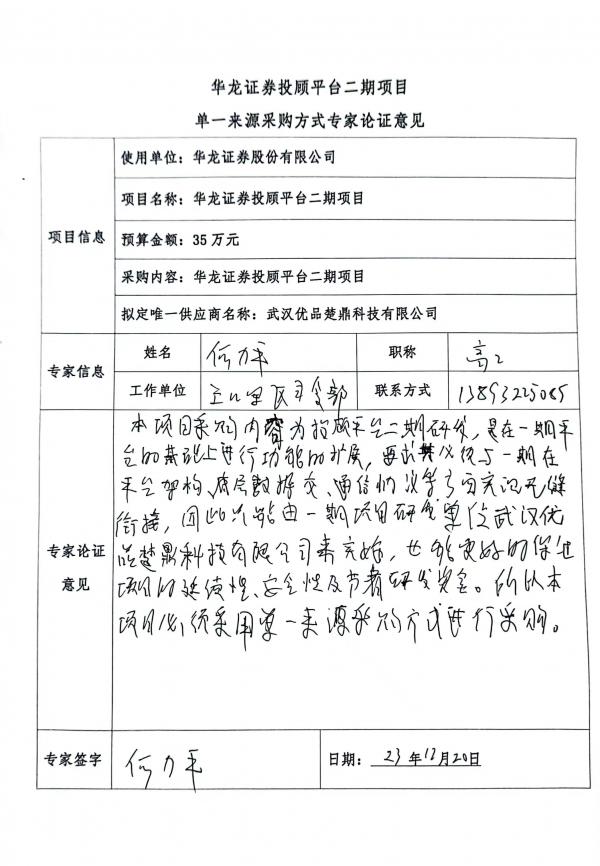 华龙证券投顾平台二期项目
单一来源采购方式专家论证意见
项目信息
使用单位：华龙证券股份有限公司
项目名称：华龙证券投顾平台二期项目
预算金额：35万元
采购内容：华龙证券投顾平台二期项目
拟定唯一供应商名称：武汉优品楚鼎科技有限公司
专家信息
姓名 何力平 职称 高工
工作单位 联系方式 13893225085
专家论证
意见
本项目采购内容为投顾平台二期研发，是在一期平
台的基础上进行功能的扩展，要求其必须与一期在
平台架构、底层数据交、通信协议等方面实现无缝
衔接，因此只能由一期项目研发单位武汉优
品楚鼎科技有限公司来实施，也能更好的保证
项目的延续性、安全性及节省研发资金。所以本
项目必须采用单一来源采购方式进行采购。
专家签字 何力平 日期：23年12月20日